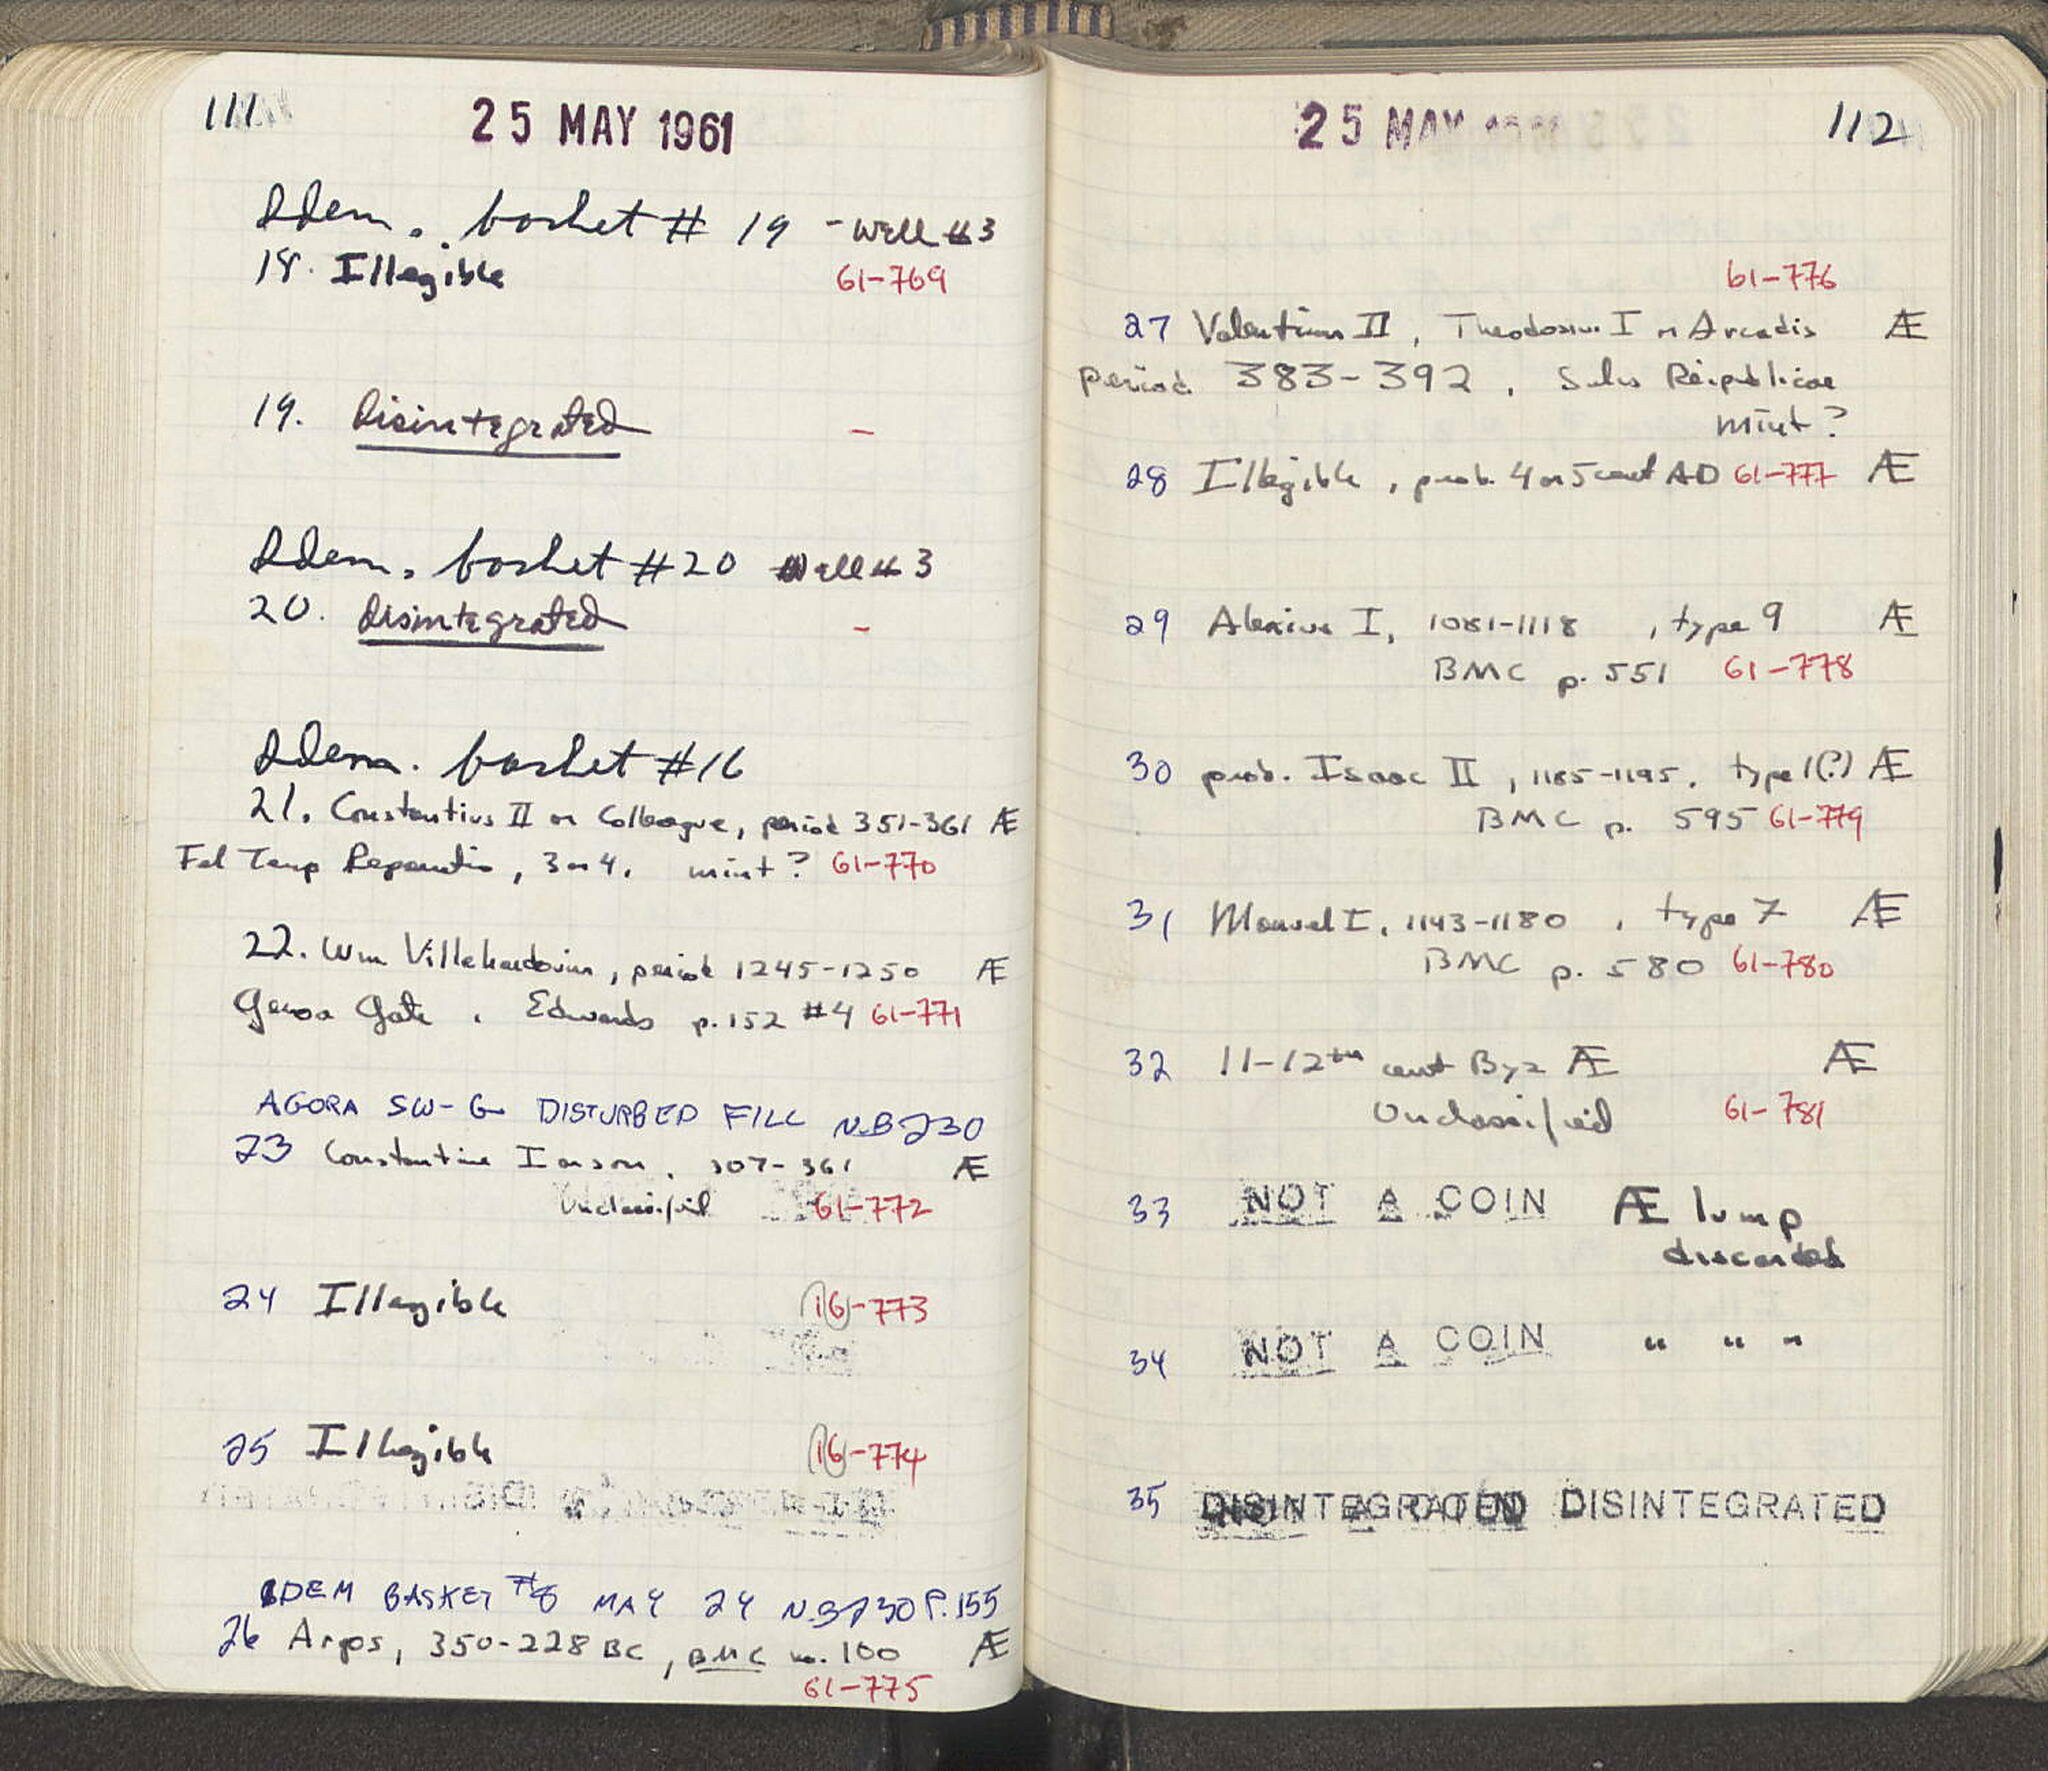 111
25 MAY 1961
Idem. basket # 19 - Well #3
18. Illegible 61-769
19. Disintegrated -
Idem. basket #20 Well #3
20. Disintegrated -
Idem. basket #16
21. Constantius II or Colleague, period 351-361 Æ
Fel Temp Reparatio, 3 or 4. mint? 61-770
22. Wm Villehardouin, period 1245-1250 Æ
Genoa Gate. Edwards p.152 #4 61-771
AGORA SW-G DISTURBED FILL N.B 230
23 Constantine I or son. 307-361 Æ
Unclassified 61-772
24 Illegible 16-773
25 Illegible 16-774
IDEM BASKET #8 MAY 24 N.B 230 P.155
26 Argos, 350-228 BC, BMC no. 100 Æ
61-775
25 MAY 1961
112
61-776
27 Valentinian II, Theodosius I or Arcadius Æ
period 383-392, Salus Reipublicae
mint?
28 Illegible, prob. 4 or 5 cent AD 61-777 Æ
29 Alexius I, 1081-1118, type 9 Æ
BMC p. 551 61-778
30 prob. Isaac II, 1185-1195. type 1(?) Æ
BMC p. 595 61-779
31 Manuel I, 1143-1180, type 7 Æ
BMC p. 580 61-780
32 11-12th cent Byz Æ Æ
Unclassified 61-781
33 NOT A COIN Æ lump
discarded
34 NOT A COIN " " "
35 DISINTEGRATED DISINTEGRATED